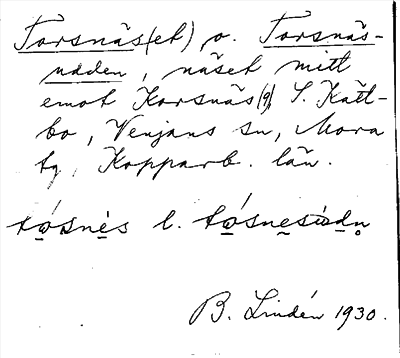 Torsnäs(et) o. Torsnäs-
udden, näset mitt
emot Korsnäs(9), S. Kätt-
bo, Venjans sn, Mora
tg, Kopparb. län.
l.
B. Lindén 1930.